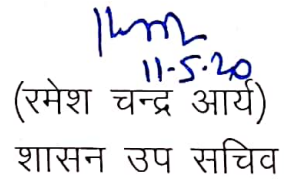 11-5-20
(रमेश चन्द्र आर्य)
शासन उप सचिव